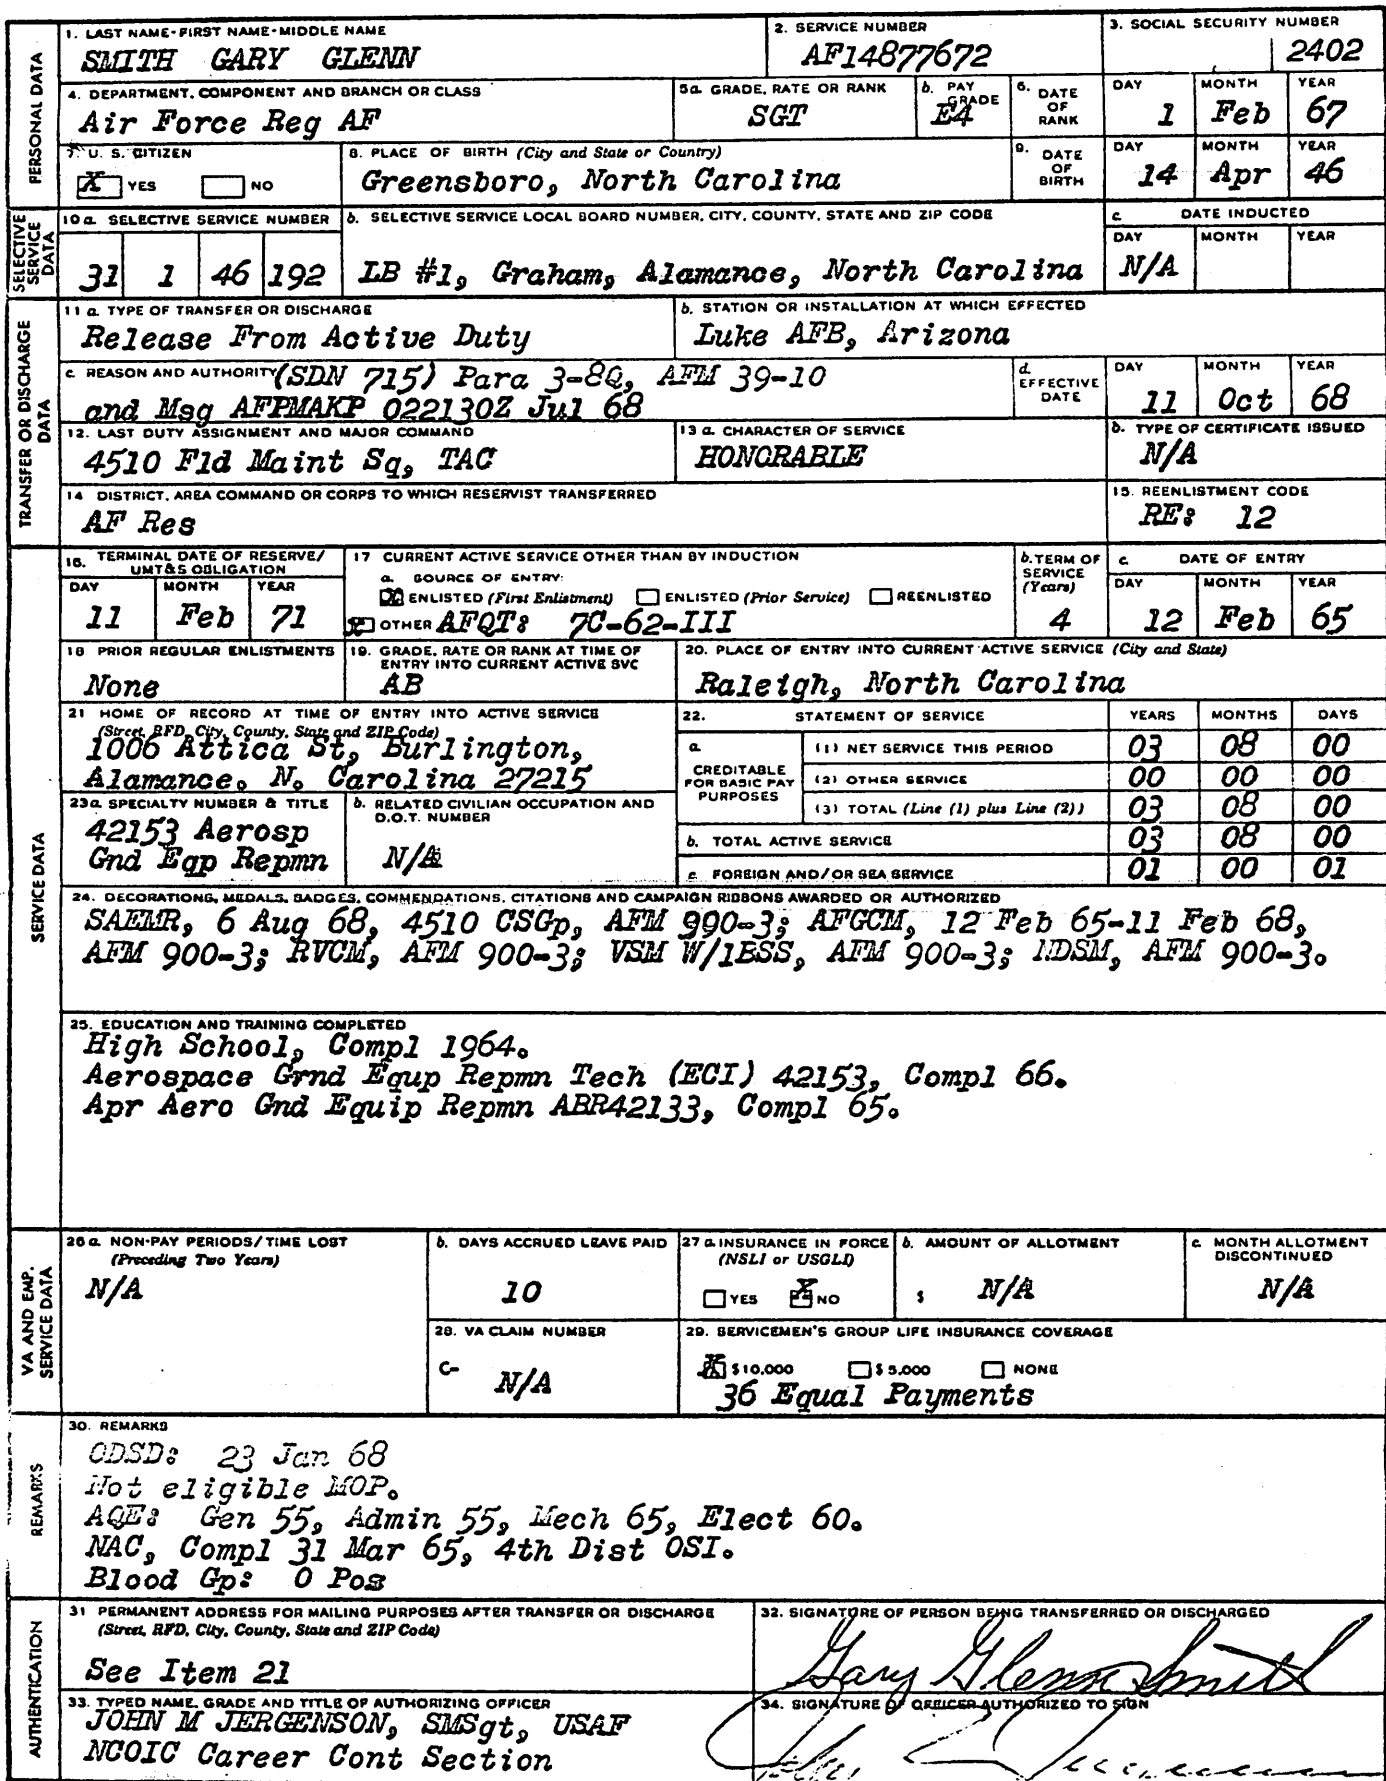 PERSONAL DATA
1. LAST NAME-FIRST NAME-MIDDLE NAME
SMITH GARY GLENN
2. SERVICE NUMBER
AF14877672
3. SOCIAL SECURITY NUMBER
2402
4. DEPARTMENT, COMPONENT AND BRANCH OR CLASS
Air Force Reg AF
5a. GRADE, RATE OR RANK
SGT
b. PAY GRADE
E4
6. DATE OF RANK
DAY MONTH YEAR
1 Feb 67
7. U. S. CITIZEN
X YES NO
8. PLACE OF BIRTH (City and State or Country)
Greensboro, North Carolina
9. DATE OF BIRTH
DAY MONTH YEAR
14 Apr 46
SELECTIVE SERVICE DATA
10 a. SELECTIVE SERVICE NUMBER
31 1 46 192
b. SELECTIVE SERVICE LOCAL BOARD NUMBER, CITY, COUNTY, STATE AND ZIP CODE
LB #1, Graham, Alamance, North Carolina
c. DATE INDUCTED
DAY MONTH YEAR
N/A
TRANSFER OR DISCHARGE DATA
11 a. TYPE OF TRANSFER OR DISCHARGE
Release From Active Duty
b. STATION OR INSTALLATION AT WHICH EFFECTED
Luke AFB, Arizona
c. REASON AND AUTHORITY (SDN 715) Para 3-8Q, AFM 39-10
and Msg AFPMAKP 022130Z Jul 68
d. EFFECTIVE DATE
DAY MONTH YEAR
11 Oct 68
12. LAST DUTY ASSIGNMENT AND MAJOR COMMAND
4510 Fld Maint Sq, TAC
13 a. CHARACTER OF SERVICE
HONORABLE
b. TYPE OF CERTIFICATE ISSUED
N/A
14 DISTRICT, AREA COMMAND OR CORPS TO WHICH RESERVIST TRANSFERRED
AF Res
15. REENLISTMENT CODE
RE: 12
SERVICE DATA
16. TERMINAL DATE OF RESERVE/ UMT&S OBLIGATION
DAY MONTH YEAR
11 Feb 71
17 CURRENT ACTIVE SERVICE OTHER THAN BY INDUCTION
a. SOURCE OF ENTRY:
X ENLISTED (First Enlistment) ENLISTED (Prior Service) REENLISTED
X OTHER AFQT: 7C-62-III
b. TERM OF SERVICE (Years)
4
c. DATE OF ENTRY
DAY MONTH YEAR
12 Feb 65
18 PRIOR REGULAR ENLISTMENTS
None
19. GRADE, RATE OR RANK AT TIME OF ENTRY INTO CURRENT ACTIVE SVC
AB
20. PLACE OF ENTRY INTO CURRENT ACTIVE SERVICE (City and State)
Raleigh, North Carolina
21 HOME OF RECORD AT TIME OF ENTRY INTO ACTIVE SERVICE
(Street, RFD, City, County, State and ZIP Code)
1006 Attica St, Burlington,
Alamance. N. Carolina 27215
22. STATEMENT OF SERVICE YEARS MONTHS DAYS
a. CREDITABLE FOR BASIC PAY PURPOSES
(1) NET SERVICE THIS PERIOD 03 08 00
(2) OTHER SERVICE 00 00 00
(3) TOTAL (Line (1) plus Line (2)) 03 08 00
b. TOTAL ACTIVE SERVICE 03 08 00
c. FOREIGN AND/OR SEA SERVICE 01 00 01
23a. SPECIALTY NUMBER & TITLE
42153 Aerosp
Gnd Eqp Repmn
b. RELATED CIVILIAN OCCUPATION AND D.O.T. NUMBER
N/A
24. DECORATIONS, MEDALS, BADGES, COMMENDATIONS, CITATIONS AND CAMPAIGN RIBBONS AWARDED OR AUTHORIZED
SAEMR, 6 Aug 68, 4510 CSGp, AFM 990-3; AFGCM, 12 Feb 65-11 Feb 68,
AFM 900-3; RVCM, AFM 900-3; VSM W/1BSS, AFM 900-3; NDSM, AFM 900-3.
25. EDUCATION AND TRAINING COMPLETED
High School, Compl 1964.
Aerospace Grnd Equp Repmn Tech (ECI) 42153, Compl 66.
Apr Aero Gnd Equip Repmn ABR42133, Compl 65.
VA AND EMP. SERVICE DATA
26 a. NON-PAY PERIODS/TIME LOST
(Preceding Two Years)
N/A
b. DAYS ACCRUED LEAVE PAID
10
27 a. INSURANCE IN FORCE
(NSLI or USGLI)
YES X NO
b. AMOUNT OF ALLOTMENT
$ N/A
c. MONTH ALLOTMENT DISCONTINUED
N/A
28. VA CLAIM NUMBER
C- N/A
29. SERVICEMEN'S GROUP LIFE INSURANCE COVERAGE
X $10,000 $5,000 NONE
36 Equal Payments
REMARKS
30. REMARKS
ODSD: 23 Jan 68
Not eligible MOP.
AQE: Gen 55, Admin 55, Mech 65, Elect 60.
NAC, Compl 31 Mar 65, 4th Dist OSI.
Blood Gp: O Pos
AUTHENTICATION
31 PERMANENT ADDRESS FOR MAILING PURPOSES AFTER TRANSFER OR DISCHARGE
(Street, RFD, City, County, State and ZIP Code)
See Item 21
32. SIGNATURE OF PERSON BEING TRANSFERRED OR DISCHARGED
Gary Glenn Smith
33. TYPED NAME, GRADE AND TITLE OF AUTHORIZING OFFICER
JOHN M JERGENSON, SMSgt, USAF
NCOIC Career Cont Section
34. SIGNATURE OF OFFICER AUTHORIZED TO SIGN